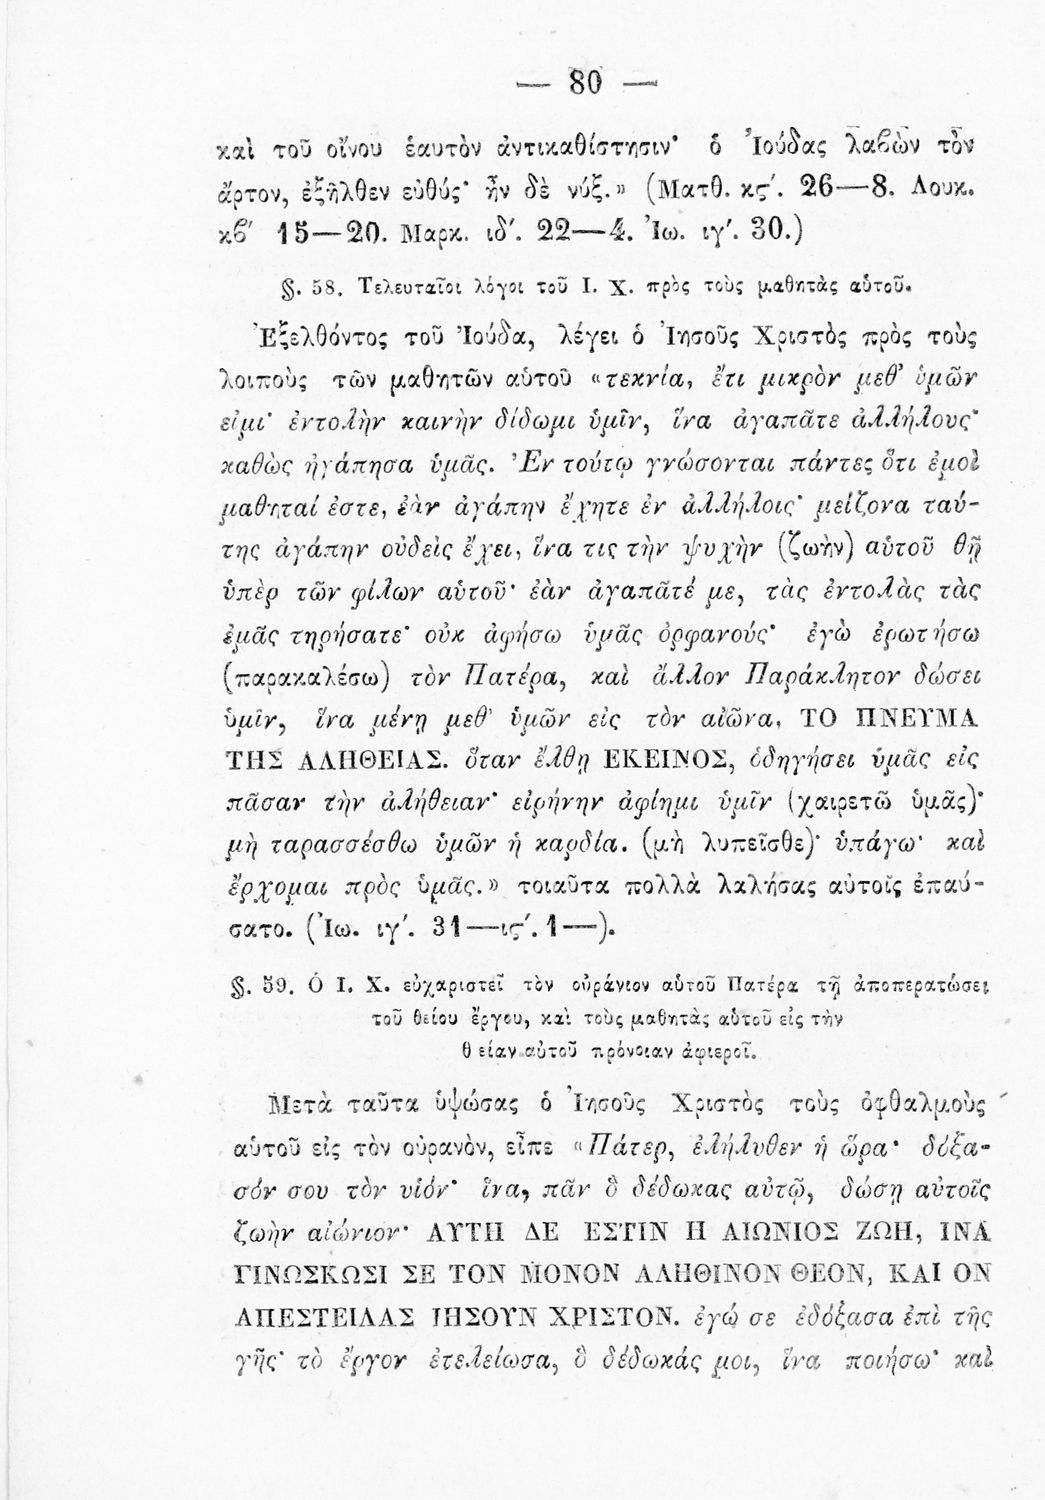 — 80 —
καὶ τοῦ οἴνου ἑαυτὸν ἀντικαθίστησιν· ὁ Ἰούδας λαβὼν τὸν
ἄρτον, ἐξῆλθεν εὐθύς· ἦν δὲ νύξ.» (Ματθ. κς΄. 26—8. Λουκ.
κβ΄ 15—20. Μαρκ. ιδ΄. 22—4. Ἰω. ιγ΄. 30.)
§. 58. Τελευταῖοι λόγοι τοῦ Ι. Χ. πρὸς τοὺς μαθητὰς αὑτοῦ.
Ἐξελθόντος τοῦ Ἰούδα, λέγει ὁ Ἰησοῦς Χριστὸς πρὸς τοὺς
λοιποὺς τῶν μαθητῶν αὑτοῦ «τεκνία, ἔτι μικρὸν μεθ' ὑμῶν
εἰμι· ἐντολὴν καινὴν δίδωμι ὑμῖν, ἵνα ἀγαπᾶτε ἀλλήλους·
καθὼς ἠγάπησα ὑμᾶς. Ἐν τούτῳ γνώσονται πάντες ὅτι ἐμοὶ
μαθηταί ἐστε, ἐὰν ἀγάπην ἔχητε ἐν ἀλλήλοις· μείζονα ταύ-
της ἀγάπην οὐδεὶς ἔχει, ἵνα τις τὴν ψυχὴν (ζωὴν) αὑτοῦ θῇ
ὑπὲρ τῶν φίλων αὑτοῦ· ἐὰν ἀγαπᾶτέ με, τὰς ἐντολὰς τὰς
ἐμᾶς τηρήσατε· οὐκ ἀφήσω ὑμᾶς ὀρφανούς· ἐγὼ ἐρωτήσω
(παρακαλέσω) τὸν Πατέρα, καὶ ἄλλον Παράκλητον δώσει
ὑμῖν, ἵνα μένῃ μεθ' ὑμῶν εἰς τὸν αἰῶνα, ΤΟ ΠΝΕΥΜΑ
ΤΗΣ ΑΛΗΘΕΙΑΣ. ὅταν ἔλθῃ ΕΚΕΙΝΟΣ, ὁδηγήσει ὑμᾶς εἰς
πᾶσαν τὴν ἀλήθειαν· εἰρήνην ἀφίημι ὑμῖν (χαιρετῶ ὑμᾶς)·
μὴ ταρασσέσθω ὑμῶν ἡ καρδία. (μὴ λυπεῖσθε)· ὑπάγω· καὶ
ἔρχομαι πρὸς ὑμᾶς.» τοιαῦτα πολλὰ λαλήσας αὐτοῖς ἐπαύ-
σατο. (Ἰω. ιγ΄. 31—ις΄. 1—).
§. 59. Ὁ Ι. Χ. εὐχαριστεῖ τὸν οὐράνιον αὑτοῦ Πατέρα τῇ ἀποπερατώσει
τοῦ θείου ἔργου, καὶ τοὺς μαθητὰς αὑτοῦ εἰς τὴν
θείαν αὐτοῦ πρόνοιαν ἀφιεροῖ.
Μετὰ ταῦτα ὑψώσας ὁ Ἰησοῦς Χριστὸς τοὺς ὀφθαλμοὺς
αὑτοῦ εἰς τὸν οὐρανὸν, εἶπε «Πάτερ, ἐλήλυθεν ἡ ὥρα· δόξα-
σόν σου τὸν υἱόν· ἵνα, πᾶν ὃ δέδωκας αὐτῷ, δώσῃ αὐτοῖς
ζωὴν αἰώνιον· ΑΥΤΗ ΔΕ ΕΣΤΙΝ Η ΑΙΩΝΙΟΣ ΖΩΗ, ΙΝΑ
ΓΙΝΩΣΚΩΣΙ ΣΕ ΤΟΝ ΜΟΝΟΝ ΑΛΗΘΙΝΟΝ ΘΕΟΝ, ΚΑΙ ΟΝ
ΑΠΕΣΤΕΙΛΑΣ ΙΗΣΟΥΝ ΧΡΙΣΤΟΝ. ἐγώ σε ἐδόξασα ἐπὶ τῆς
γῆς· τὸ ἔργον ἐτελείωσα, ὃ δέδωκάς μοι, ἵνα ποιήσω· καὶ